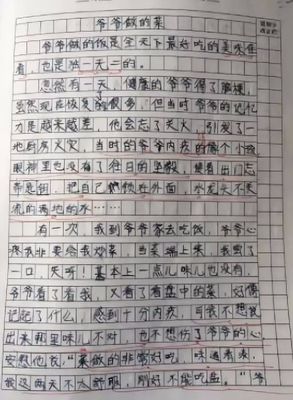 爷爷做的菜
爷爷做的饭是全天下最好吃的美味佳
肴，也是独一无二的。
忽然有一天，健康的爷爷得了脑梗，
虽然现在恢复的很多，但当时爷爷的记忆
力是越来越差，他会忘了关火，引发了一
地厨房火灾，当时的爷爷内疚的像个小孩
眼神里也没有了往日的坚毅，接着出门忘
带钥匙，把自己锁在外面，水龙头不关
流的满地的水……
有一次，我到爷爷家去吃饭，爷爷心
疼我非要给我炒菜，当菜端上来，我尝了
一口，天呀！基本上一点儿味儿也没有，
爷爷看了看我，又看了看盘中的菜，好像
记起了什么，感到十分内疚，可我不想说
出来哪里味儿不对，也不想伤了爷爷的心
安慰他说，“菜做的非常好吃，味道有淡，
我这两天不太舒服，刚好不能吃盐。”爷